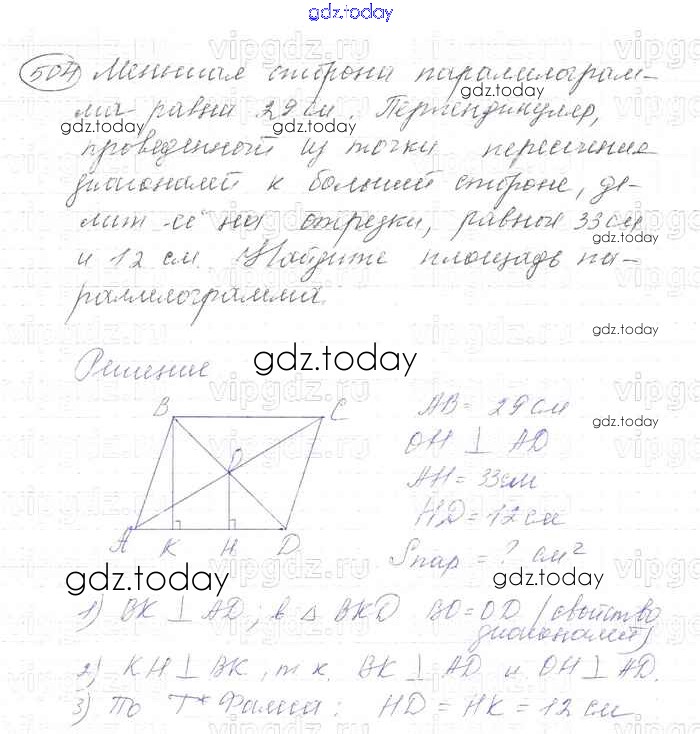 gdz.today
504 Меньшая сторона параллелограм-
ма равна 29 см. Перпендикуляр,
gdz.today
gdz.today
проведенный из точки пересечения
диагоналей к большей стороне, де-
лит её на отрезки, равные 33 см
gdz.today
и 12 см. Найдите площадь па-
раллелограмма.
gdz.today
Решение
gdz.today
B C
AB = 29 см
gdz.today
OH ⊥ AD
O
AH = 33 см
HD = 12 см
A K H D
Sпар = ? см²
gdz.today
gdz.today
1) BK ⊥ AD; в △ BKD BO = OD (свойство
диагоналей)
2) KH ⊥ BK, т.к. BK ⊥ AD и OH ⊥ AD.
3) По Т* Фалеса: HD = HK = 12 см
gdz.today
gdz.today
vipgdz.ru